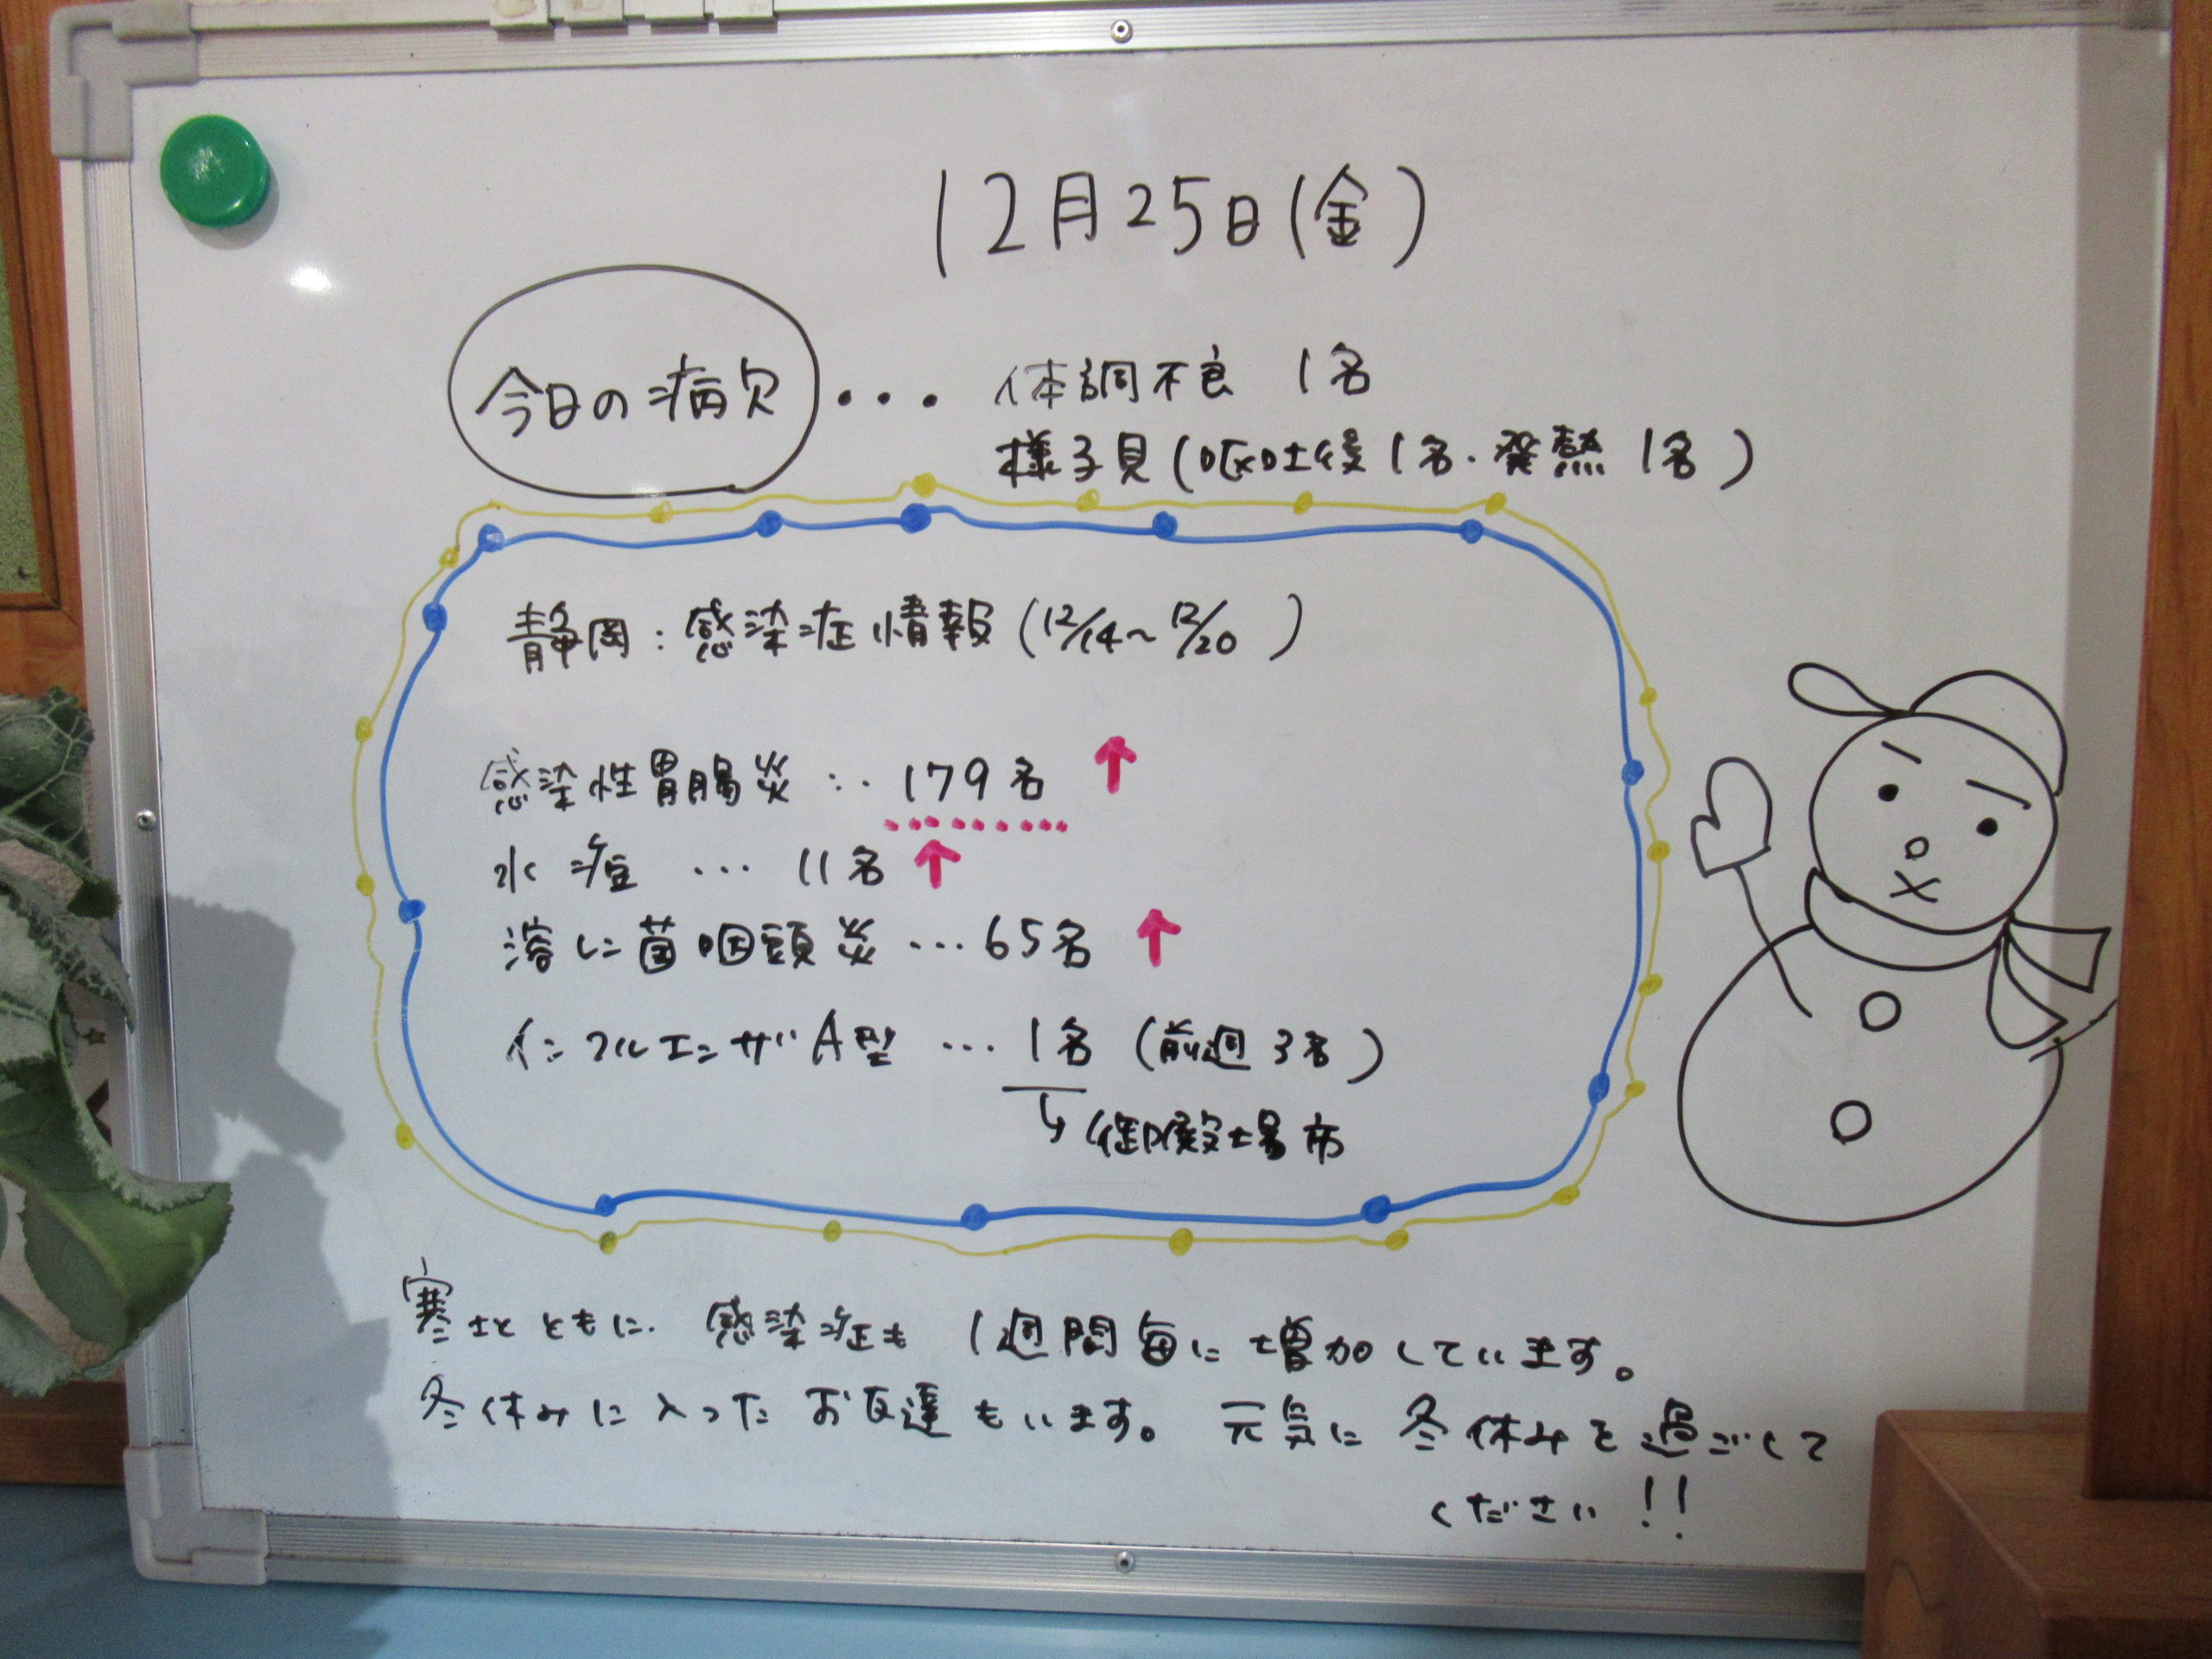 12月25日(金)
今日の病欠 ・・・ 体調不良 1名
様子見(嘔吐後1名・発熱1名)
静岡:感染症情報(12/14~12/20)
感染性胃腸炎 ・・・ 179名 ↑
水痘 ・・・ 11名 ↑
溶レン菌咽頭炎 ・・・65名 ↑
インフルエンザA型 ・・・ 1名 (前週3名)
↳御殿場市
寒さとともに、感染症も 1週間毎に増加しています。
冬休みに入ったお友達もいます。 元気に冬休みを過ごして
ください!!